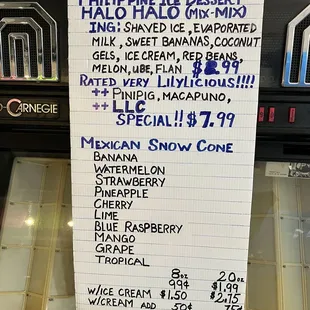 PHILIPPINE ICE DESSERT
HALO HALO (MIX-MIX)
ING: SHAVED ICE, EVAPORATED
MILK, SWEET BANANAS, COCONUT
GELS, ICE CREAM, RED BEANS,
MELON, UBE, FLAN $8.99
RATED VERY LILYLICIOUS!!!!
++ PINIPIG, MACAPUNO,
++ LLC
SPECIAL!! $7.99
MEXICAN SNOW CONE
BANANA
WATERMELON
STRAWBERRY
PINEAPPLE
CHERRY
LIME
BLUE RASPBERRY
MANGO
GRAPE
TROPICAL
8oz 20oz
99¢ $1.99
W/ICE CREAM $1.50 $2.75
W/CREAM ADD 50¢ 75¢
O-CARNEGIE